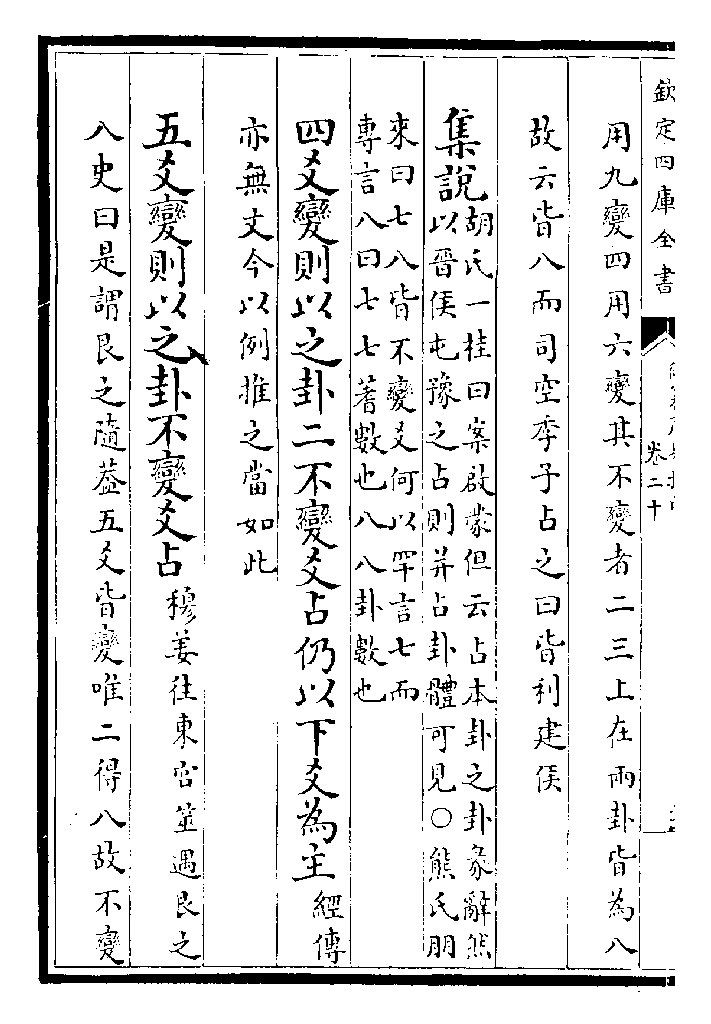 欽定四庫全書
卷二十
用九變四用六變其不變者二三上在兩卦皆為八
故云皆八而司空季子占之曰皆利建侯
集說胡氏一桂曰案啟蒙但云占本卦之卦彖辭然
以晉侯屯豫之占則并占卦體可見○熊氏朋
來曰七八皆不變爻何以罕言七而
專言八曰七七蓍數也八八卦數也
四爻變則以之卦二不變爻占仍以下爻為主經傳
亦無文今以例推之當如此
五爻變則以之卦不變爻占穆姜往東宮筮遇艮之
八史曰是謂艮之隨葢五爻皆變唯二得八故不變